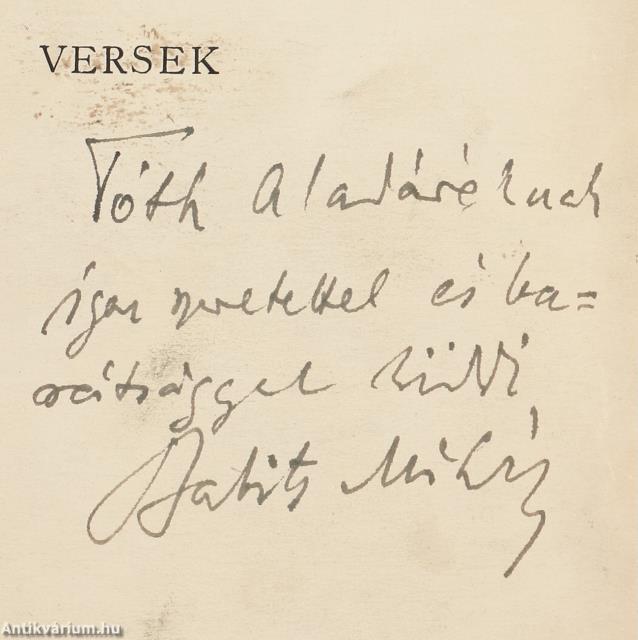 VERSEK
Tóth Aladáréknak
igaz szeretettel és ba=
rátsággal küldi
Babits Mihály
Antikvárium.hu